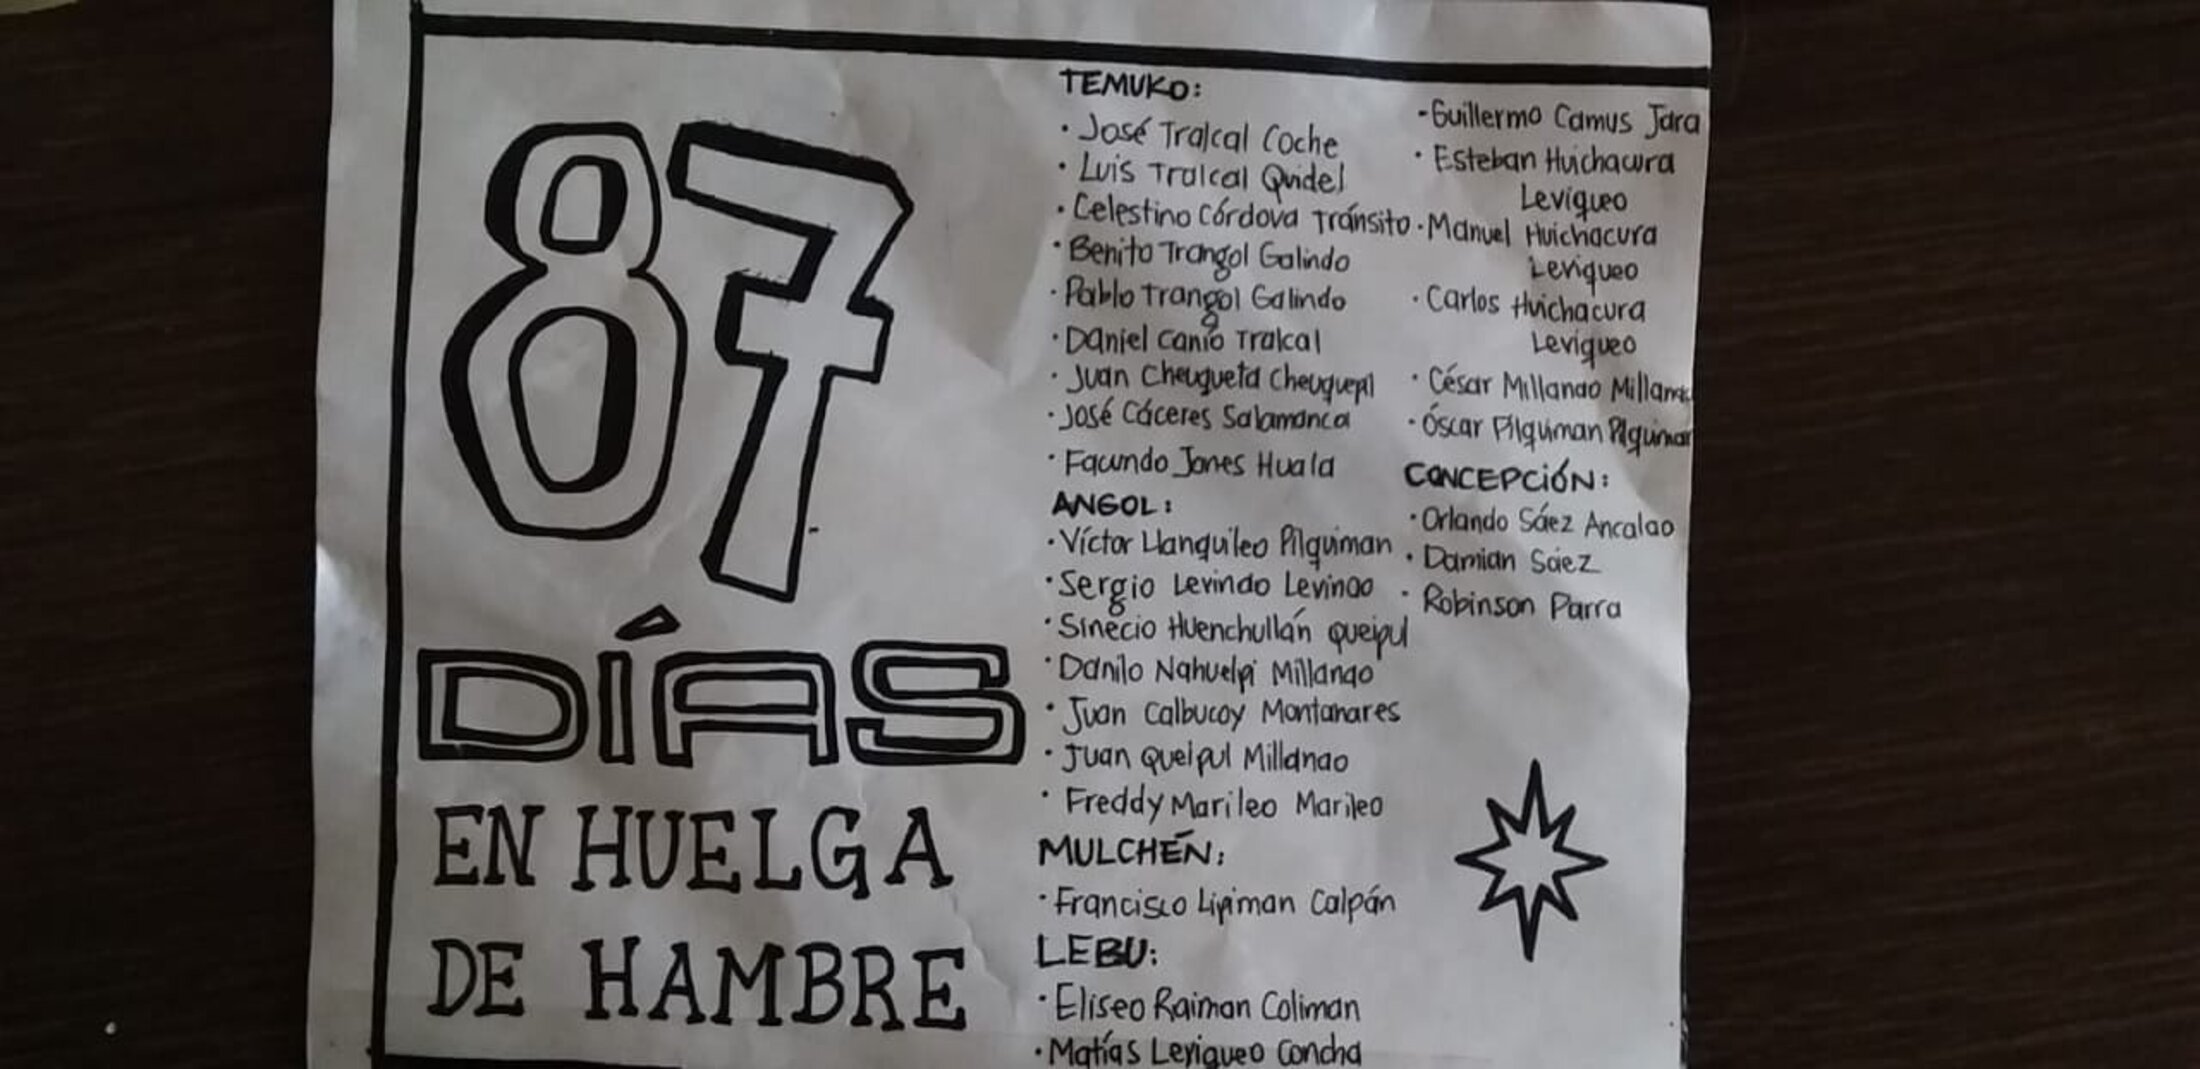 87
DÍAS
EN HUELGA
DE HAMBRE
TEMUKO:
· José Tralcal Coche
· Luis Tralcal Quidel
· Celestino Córdova Tránsito
· Benito Trangol Galindo
· Pablo Trangol Galindo
· Daniel Canio Tralcal
· Juan Cheuqueta Cheuquepil
· José Cáceres Salamanca
· Facundo Jones Huala
ANGOL:
· Víctor Llanquileo Pilquiman
· Sergio Levinao Levinao
· Sinecio Huenchullán Queipul
· Danilo Nahuelpi Millanao
· Juan Calbucoy Montanares
· Juan Queipul Millanao
· Freddy Marileo Marileo
MULCHÉN:
· Francisco Lipiman Calpán
LEBU:
· Eliseo Raiman Coliman
· Matías Leviqueo Concha
- Guillermo Camus Jara
· Esteban Huichacura
Leviqueo
· Manuel Huichacura
Leviqueo
· Carlos Huichacura
Leviqueo
· César Millanao Millanao
· Óscar Pilquiman Pilquiman
CONCEPCIÓN:
· Orlando Sáez Ancalao
· Damian Sáez
· Robinson Parra